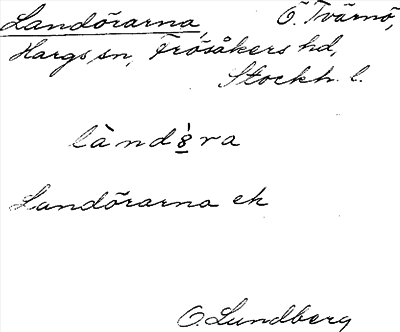 Landörarna, Ö. Tvärnö,
Hargs sn, Frösåkers hd,
Stockh. l.
làndö̀ra
Landörarna ek
O. Lundberg